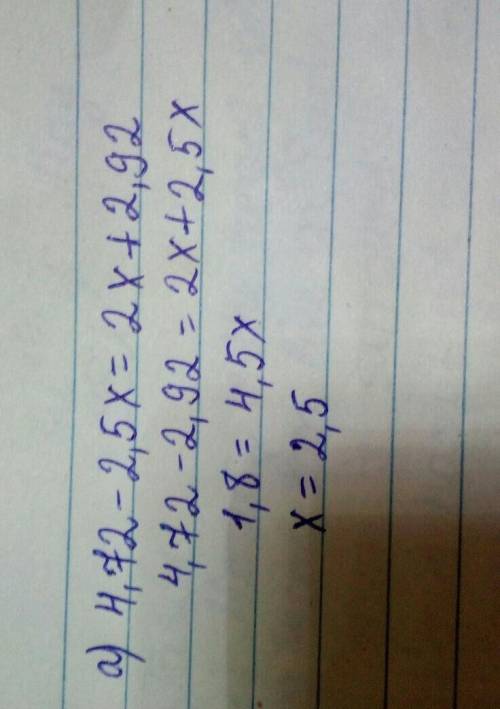 а) 4,72 - 2,5x = 2x + 2,92
4,72 - 2,92 = 2x + 2,5x
1,8 = 4,5x
x = 2,5